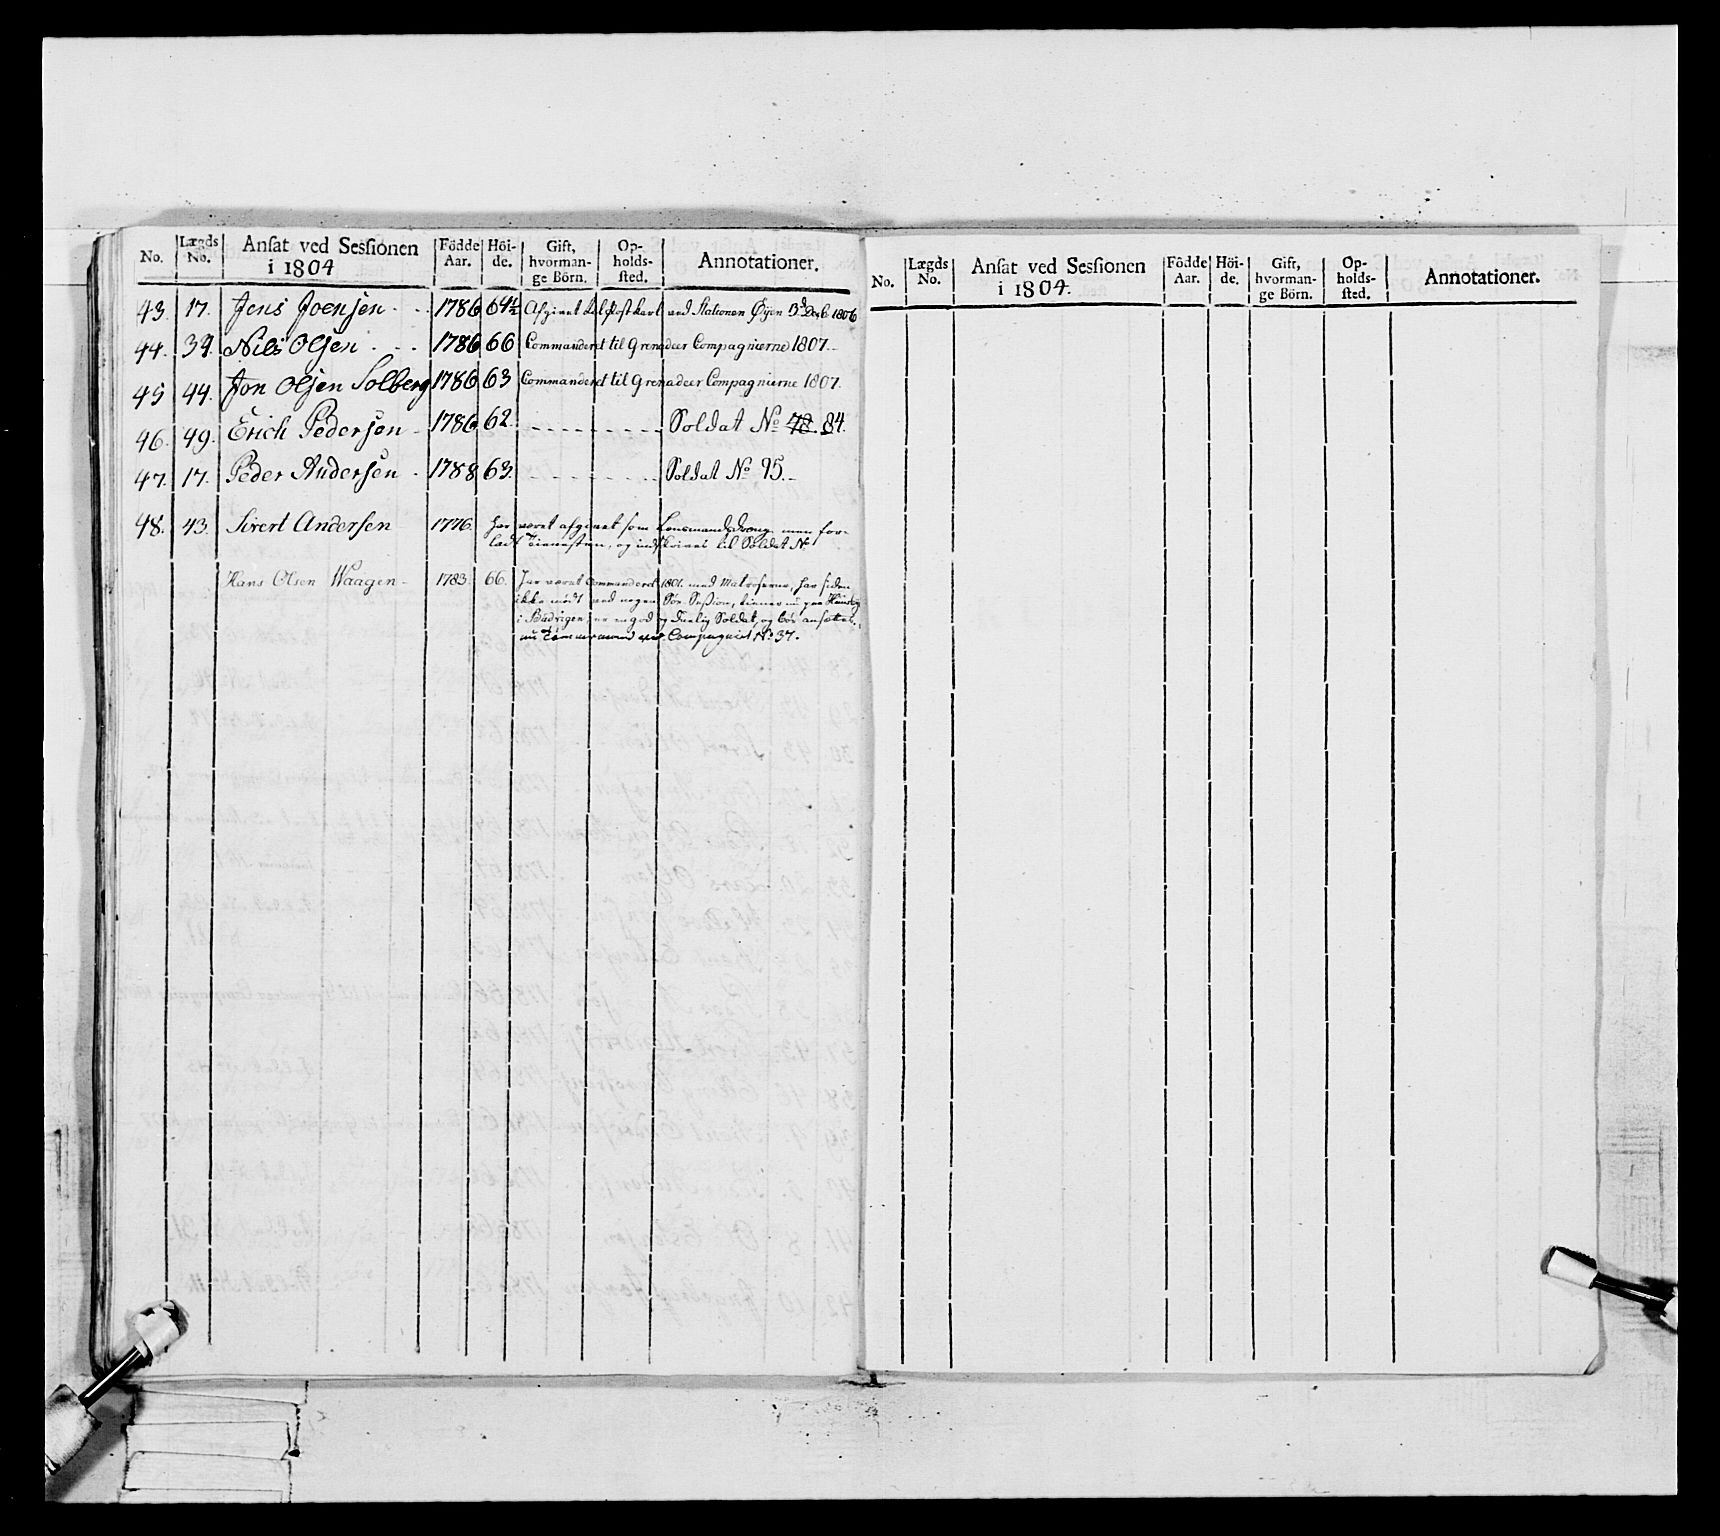 No. Lægds No. Ansat ved Sessionen i 1804 Födde Aar. Höide. Gift, hvormange Börn. Opholdssted. Annotationer.
43. 17. Jens Joensen - - 1786 64½ Afgivet til Postkarl ved Stationen Öyen 3d Decb 1806
44. 34. Nils Olsen - - 1786 66 Commanderet til Grenadeer Compagnierne 1807.
45 44. Jon Olsen Solberg 1786 63 Commanderet til Grenadeer Compagnierne 1807.
46. 49. Erich Pedersen - 1786 62. - - - - - - - - Soldat No 78. 84.
47. 17. Peder Andersen - 1788 63. - - - - - - - - Soldat No 95.
48. 43. Sivert Andersen 1776. har været afgivet som Lensmandsdreng men for-
ladt Tienesten, og indskrives til Soldat No
Hans Olsen Waagen - 1783. 66. har været Commanderet 1801. med Matroserne, har siden
ikke mödt ved nogen Söe Session, tiener nu paa
i Badvigen, er en god og Duelig Soldat, og bör ansættes.
nu Tömmermand ved Compagniet No 37.
No. Lægds No. Ansat ved Sessionen i 1804. Födde Aar. Höide. Gift, hvormange Börn. Opholdssted. Annotationer.